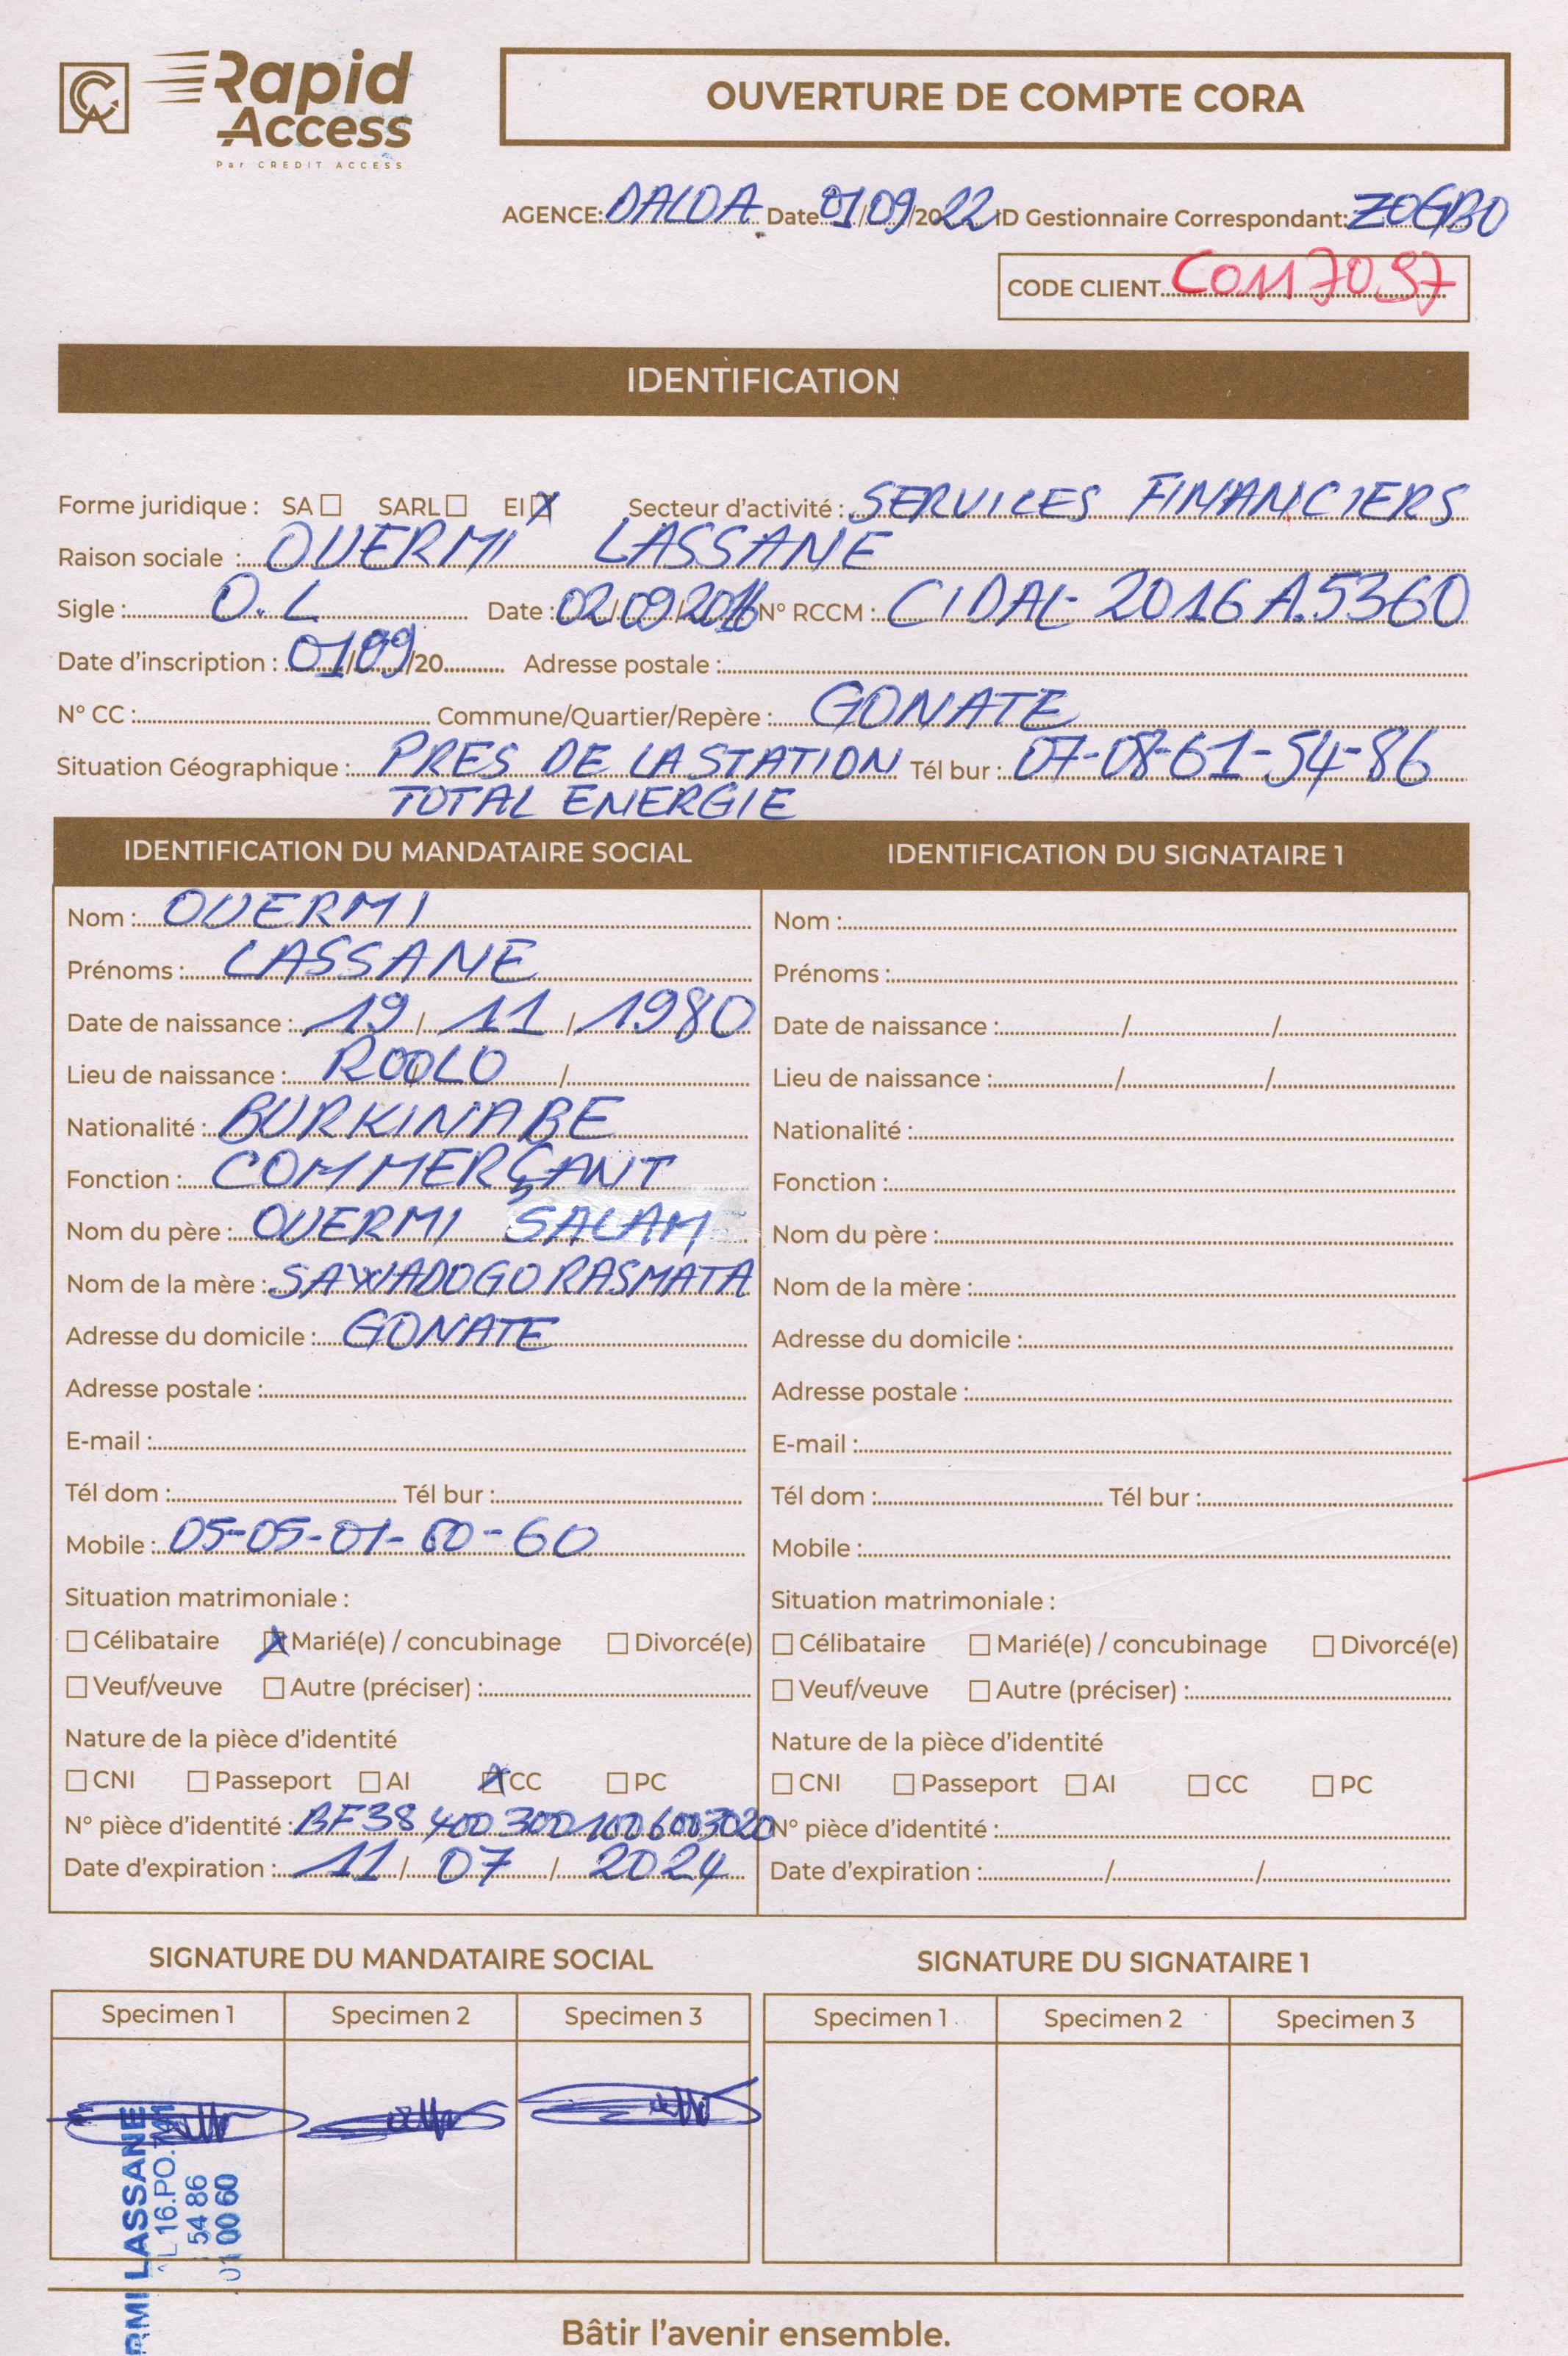 Rapid
Access
Par CREDIT ACCESS
OUVERTURE DE COMPTE CORA
AGENCE: DALOA Date 01/09/2022 ID Gestionnaire Correspondant: ZOGBO
CODE CLIENT C0117097
IDENTIFICATION
Forme juridique : SA SARL EI X Secteur d'activité : SERVICES FINANCIERS
Raison sociale : OUERMI LASSANE
Sigle : O.L Date : 02/09/2016 N° RCCM : CIDAL 2016 A.5360
Date d'inscription : 01/09/20 Adresse postale :
N° CC : Commune/Quartier/Repère : GONATE
Situation Géographique : PRES DE LA STATION Tél bur : 07-08-61-54-86
TOTAL ENERGIE
IDENTIFICATION DU MANDATAIRE SOCIAL
Nom : OUERMI
Prénoms : LASSANE
Date de naissance : 19 / 11 / 1980
Lieu de naissance : ROOLO /
Nationalité : BURKINABE
Fonction : COMMERÇANT
Nom du père : OUERMI SALAM
Nom de la mère : SAWADOGO RASMATA
Adresse du domicile : GONATE
Adresse postale :
E-mail :
Tél dom : Tél bur :
Mobile : 05-05-01-60-60
Situation matrimoniale :
Célibataire X Marié(e) / concubinage Divorcé(e)
Veuf/veuve Autre (préciser) :
Nature de la pièce d'identité
CNI Passeport AI X CC PC
N° pièce d'identité : BF38 400 3001006003020
Date d'expiration : 11 / 07 / 2024
IDENTIFICATION DU SIGNATAIRE 1
Nom :
Prénoms :
Date de naissance : / /
Lieu de naissance : / /
Nationalité :
Fonction :
Nom du père :
Nom de la mère :
Adresse du domicile :
Adresse postale :
E-mail :
Tél dom : Tél bur :
Mobile :
Situation matrimoniale :
Célibataire Marié(e) / concubinage Divorcé(e)
Veuf/veuve Autre (préciser) :
Nature de la pièce d'identité
CNI Passeport AI CC PC
N° pièce d'identité :
Date d'expiration : / /
SIGNATURE DU MANDATAIRE SOCIAL
Specimen 1 Specimen 2 Specimen 3
RMI LASSANE
L 16.PO.
54 86
01 00 60
SIGNATURE DU SIGNATAIRE 1
Specimen 1 Specimen 2 Specimen 3
Bâtir l'avenir ensemble.